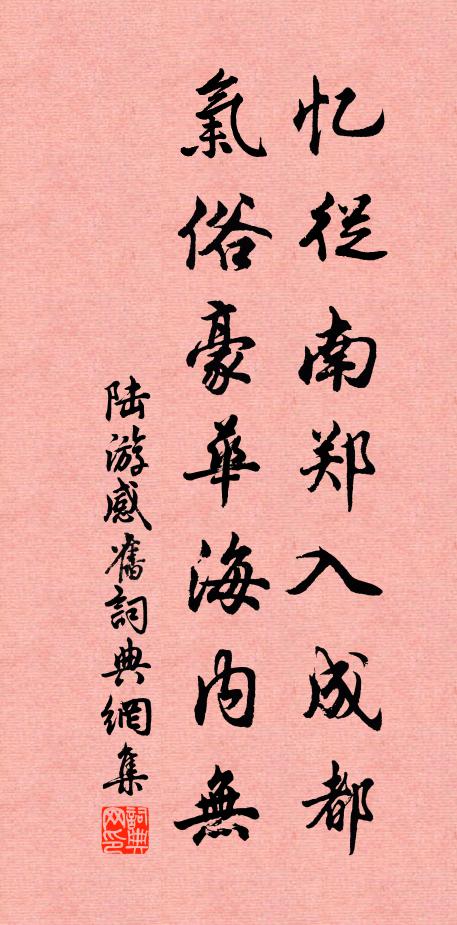 忆從南郑入成都
氣俗豪華海内無
陆游感舊詞典網集
詞典网印